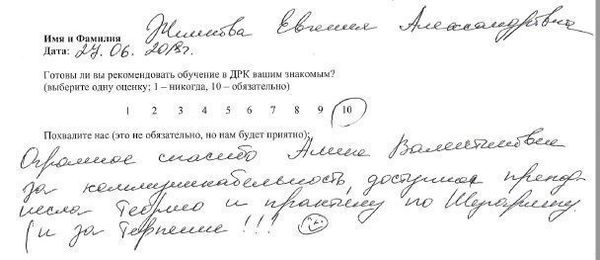 Имя и Фамилия Жилкова Евгения Александровна
Дата: 27.06.2013г.
Готовы ли вы рекомендовать обучение в ДРК вашим знакомым?
(выберите одну оценку; 1 – никогда, 10 – обязательно)
1 2 3 4 5 6 7 8 9 10
Похвалите нас (это не обязательно, но нам будет приятно):
Огромное спасибо Алине Валентиновне
за коммуникабельность, доступно препод-
несла теорию и практику по Шугарингу.
(и за терпение!!!